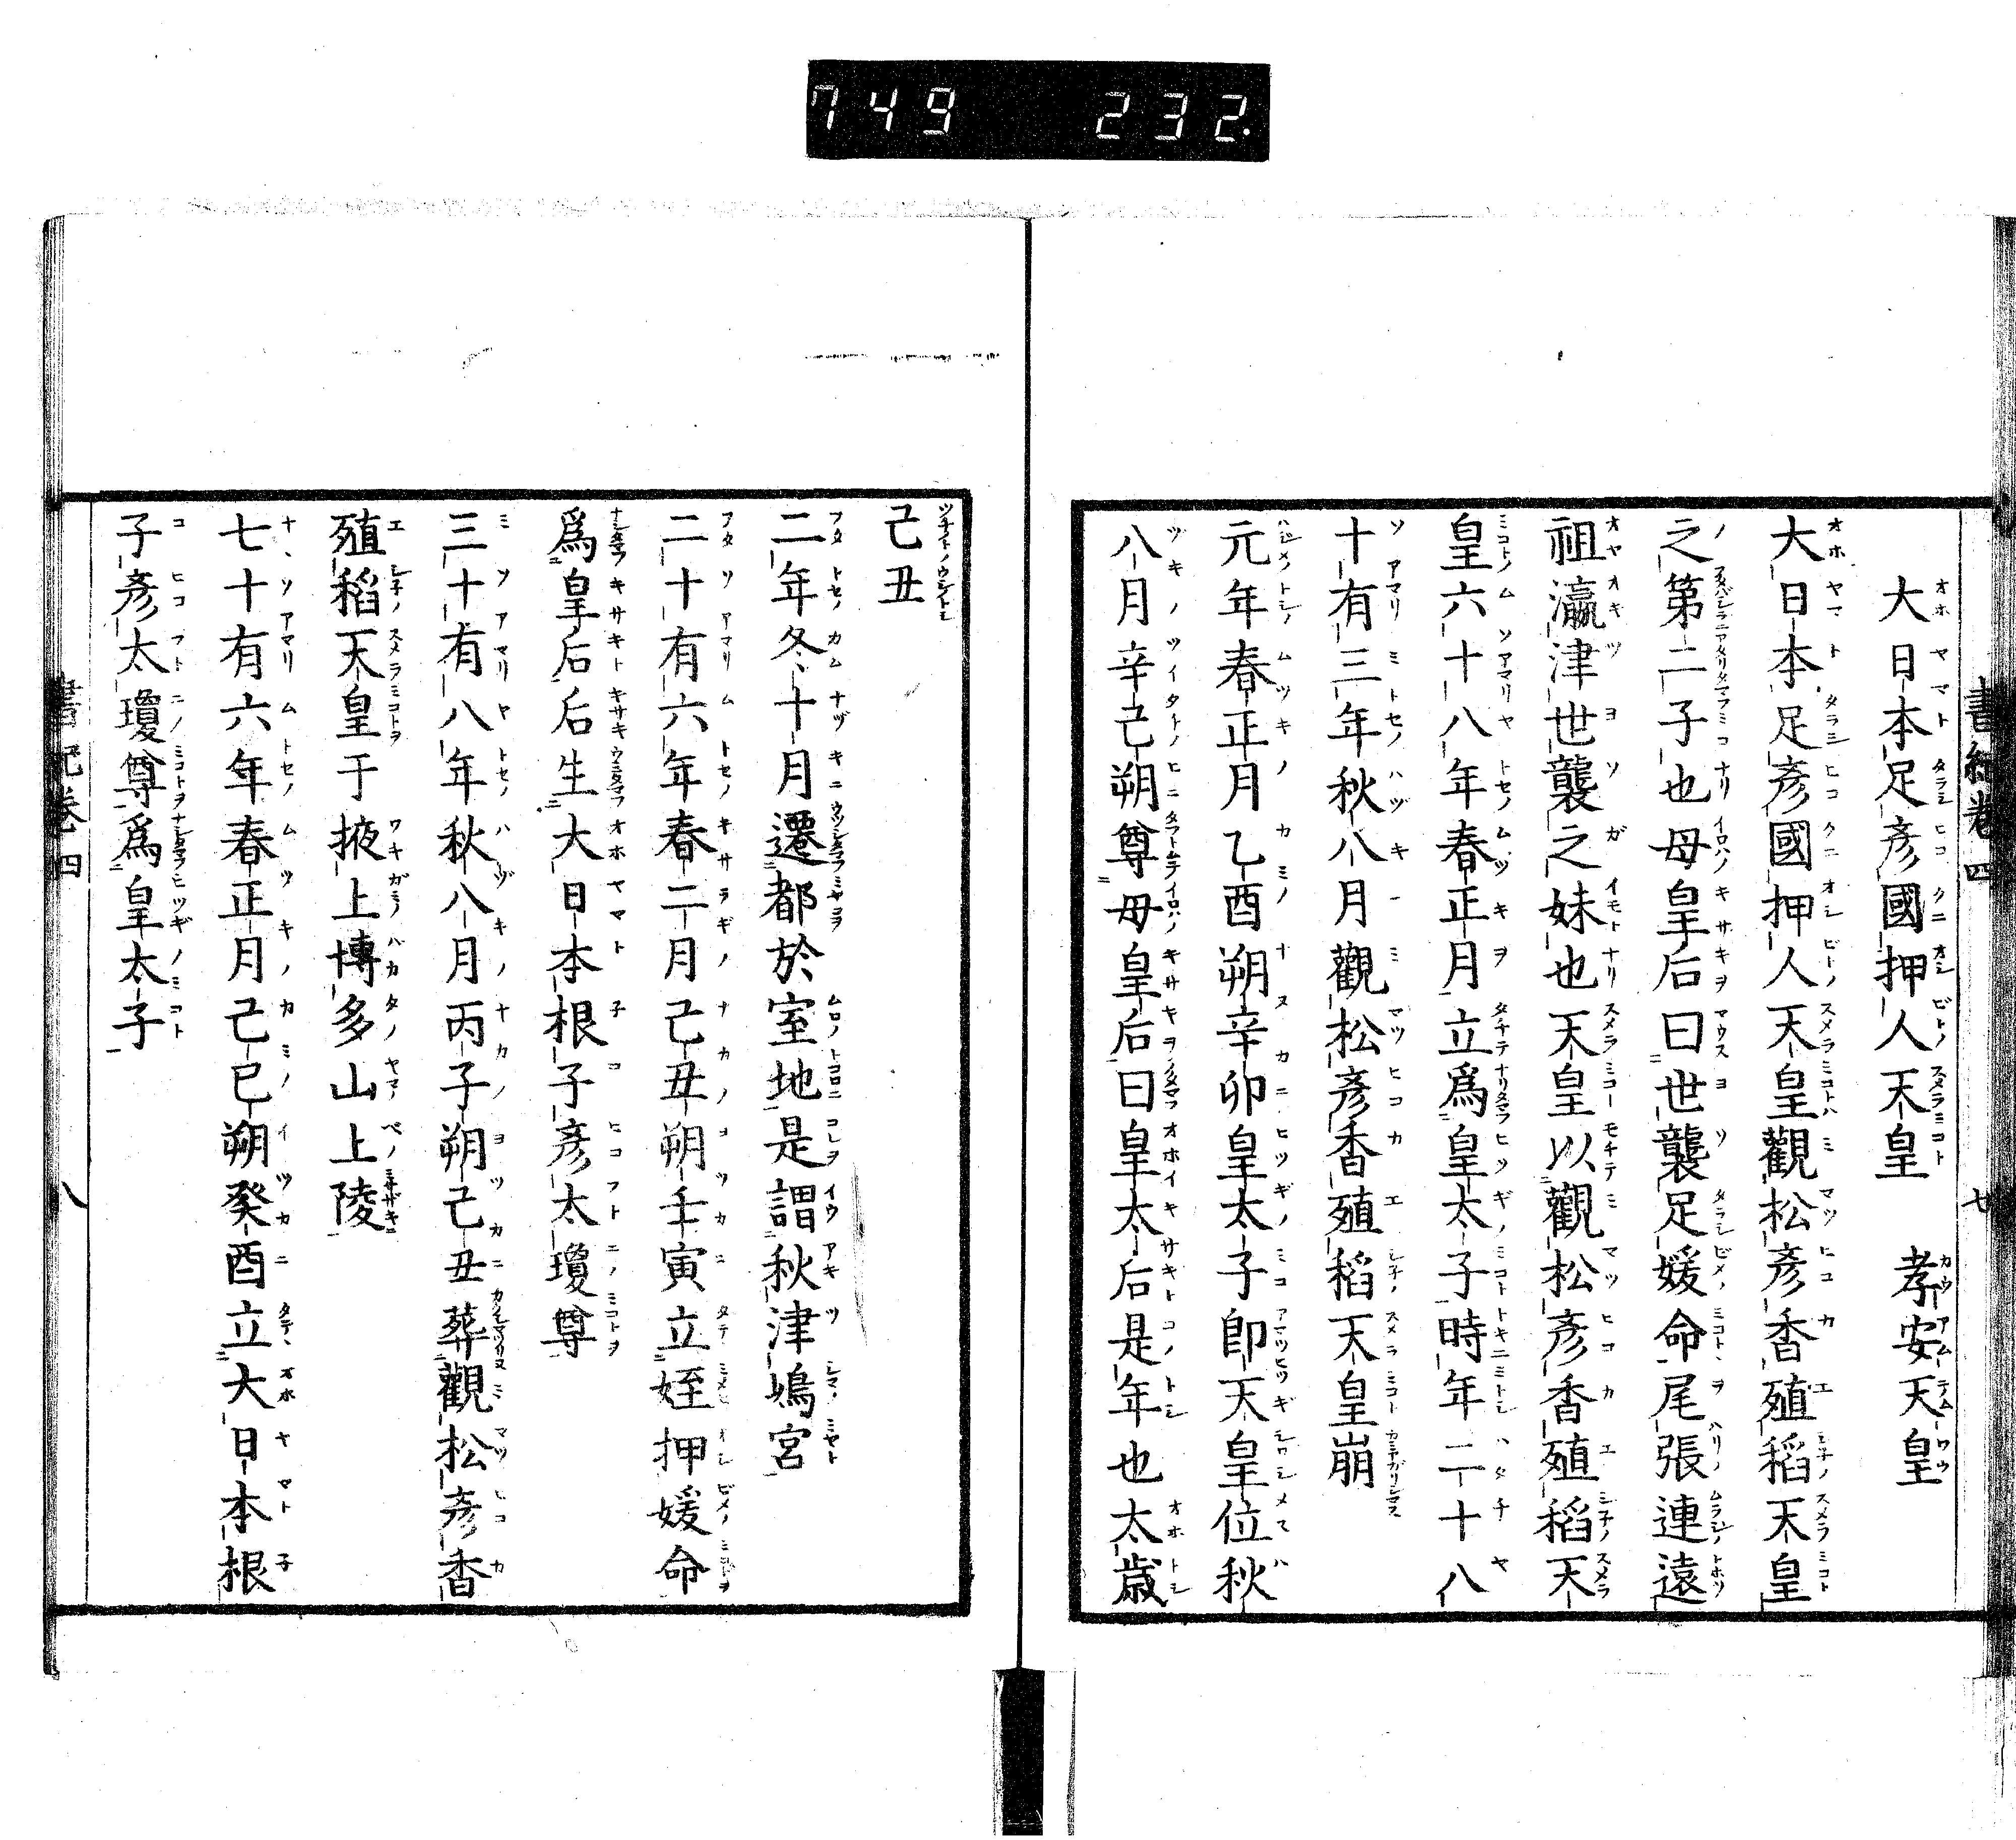 749 232.
書紀卷四 七
大日本足彥國押人天皇 孝安天皇
大日本足彥國押人天皇觀松彥香殖稻天皇
之第二子也母皇后曰世襲足媛命尾張連遠
祖瀛津世襲之妹也天皇以觀松彥香殖稻天
皇六十八年春正月立爲皇太子時年二十八
十有三年秋八月觀松彥香殖稻天皇崩
元年春正月乙酉朔辛卯皇太子卽天皇位秋
八月辛己朔尊母皇后曰皇太后是年也太歲
己丑
二年冬十月遷都於室地是謂秋津嶋宮
二十有六年春二月己丑朔壬寅立姪押媛命
爲皇后后生大日本根子彥太瓊尊
三十有八年秋八月丙子朔己丑葬觀松彥香
殖稻天皇于掖上博多山上陵
七十有六年春正月己巳朔癸酉立大日本根
子彥太瓊尊爲皇太子
書紀卷四 八